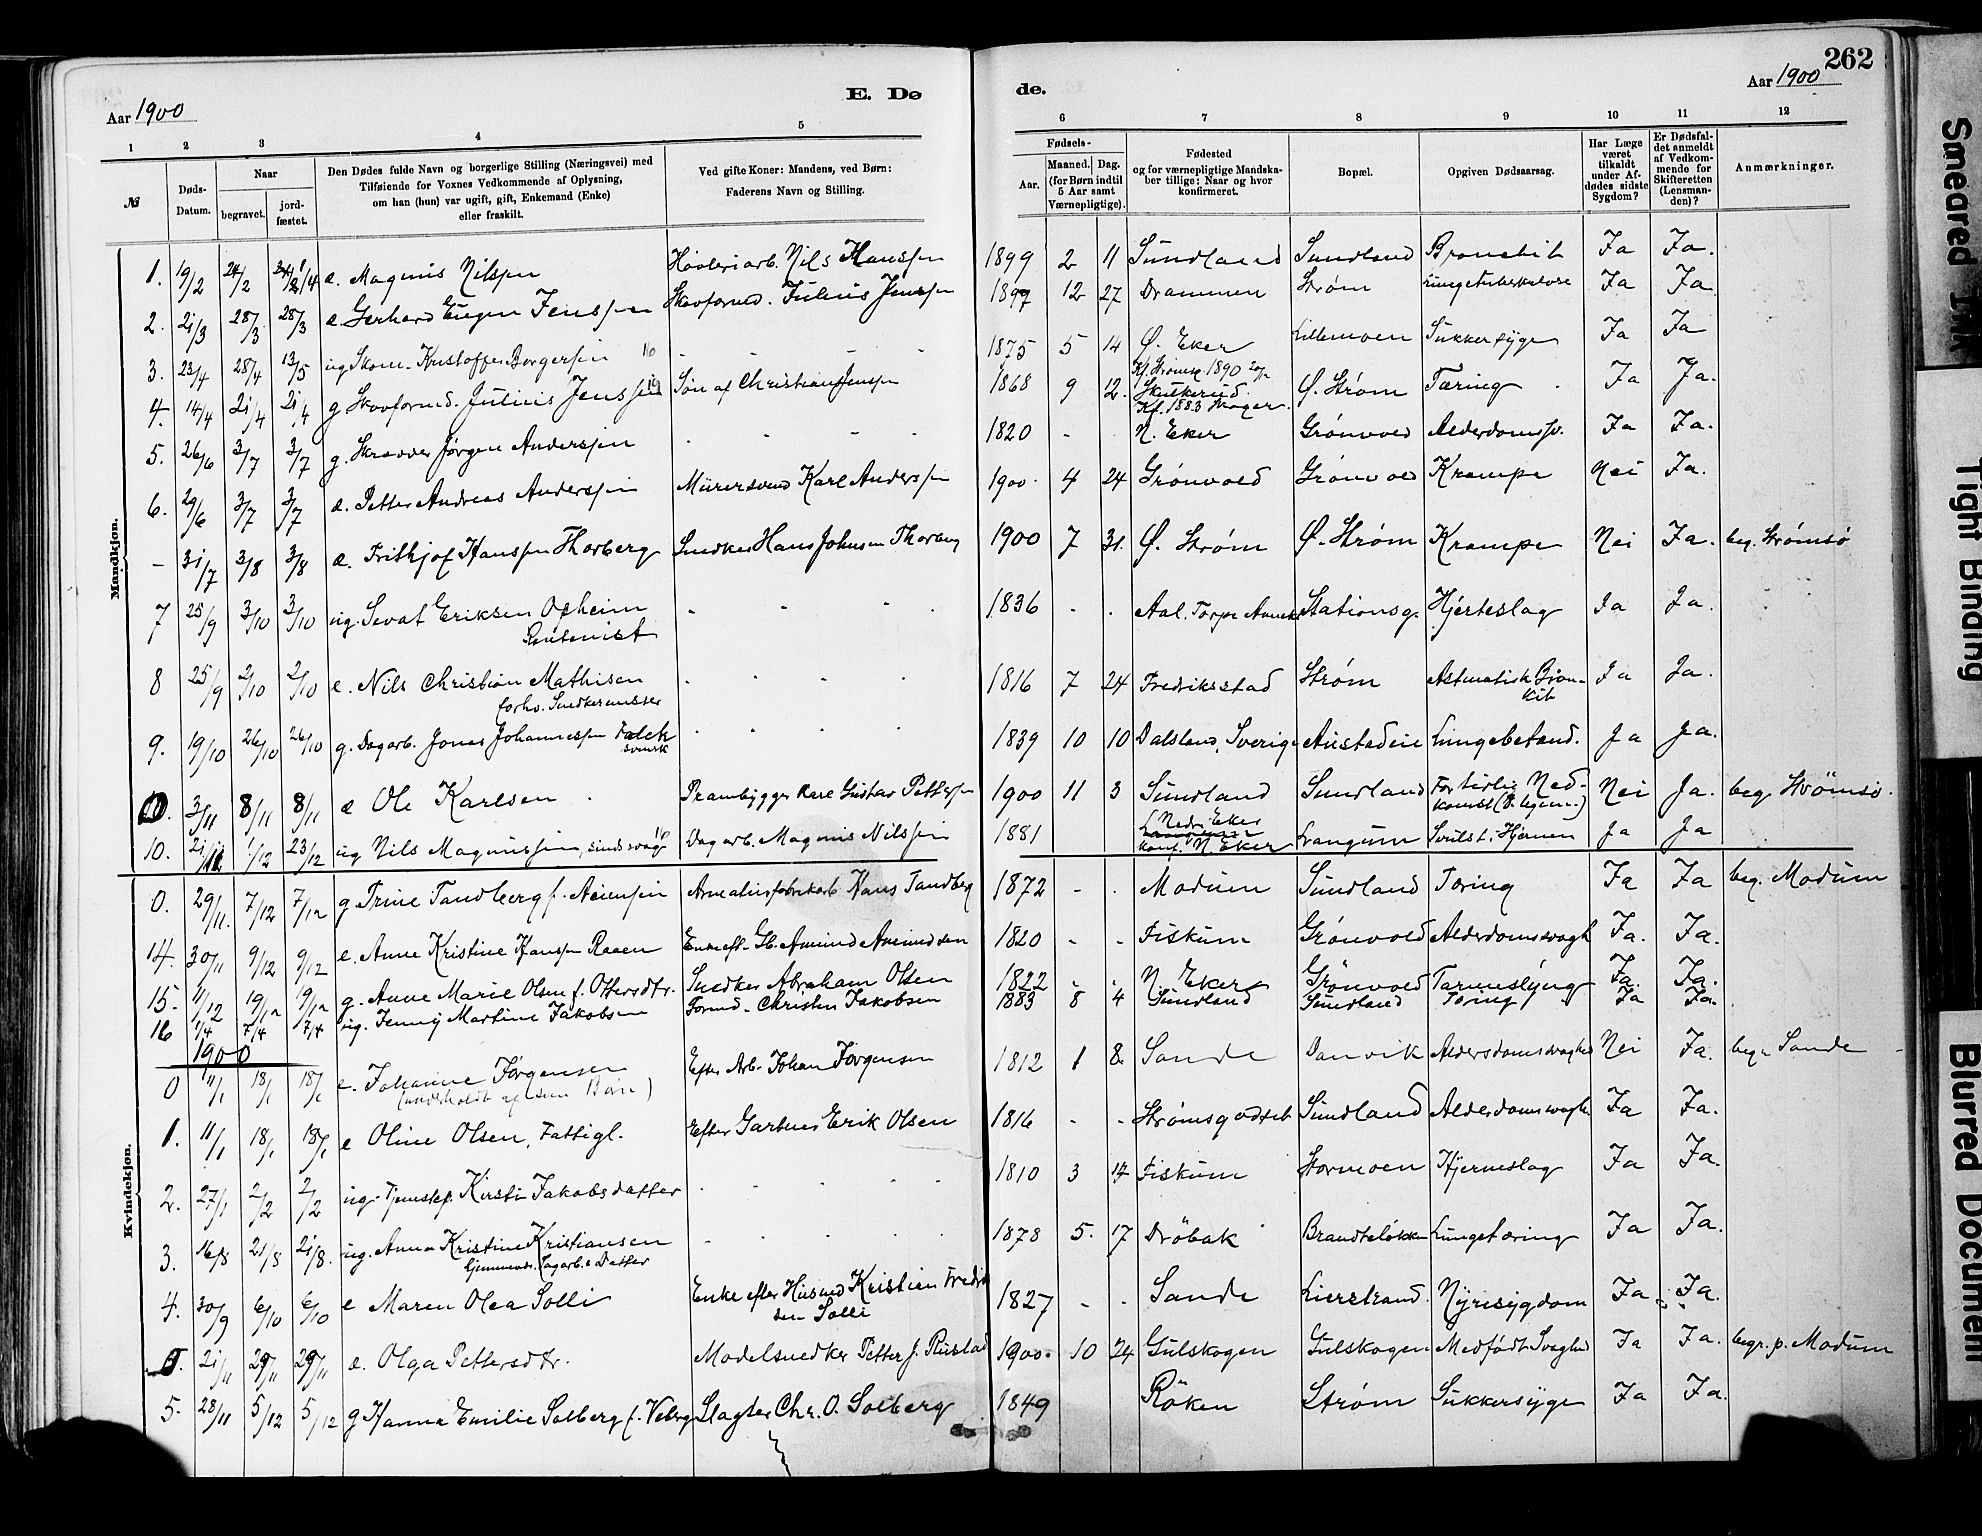 262
Aar 1900
E. Dø
de.
Aar 1900
1 2 3 4 5 6 7 8 9 10 11 12
№
Døds-Datum.
Naar
begravet.
jord-fæstet.
Den Dødes fulde Navn og borgerlige Stilling (Næringsvei) med
Tilføiende for Voxnes Vedkommende af Oplysning,
om han (hun) var ugift, gift, Enkemand (Enke)
eller fraskilt.
Ved gifte Koner: Mandens, ved Børn:
Faderens Navn og Stilling.
Fødsels-
Aar.
Maaned. Dag.
(for Børn indtil
5 Aar samt
Værnepligtige).
Fødested
og for værnepligtige Mandska-
ber tillige: Naar og hvor
konfirmeret.
Bopæl.
Opgiven Dødsaarsag.
Har Læge
været
tilkaldt
under Af-
dødes sidste
Sygdom?
Er Dødsfal-
det anmeldt
af Vedkom-
mende for
Skifteretten
(Lensman-
den)?
Anmærkninger.
Mandkjøn.
1. 19/2 24/2 æ. Magnus Nilssen Høvleriarb. Nils Hanssen 1899 2 11 Sundland Sundland Bronchit Ja Ja.
2. 21/3 28/3 28/3 æ. Gerhard Eugen Jenssen Skovformd. Julius Jenssen 1897 12 27 Drammen Strøm Lungetuberkulose Ja Ja
3. 23/4 28/4 13/5 ug Skom. Kristoffer Borgersen 1875 5 14 Ø. Eker Lillemoen Sukkersyge Ja Ja
Kf. Strømsg. 1890
4. 14/4 21/4 21/4 g Skovformd. Julius Jenssen Søn af Christian Jenssen 1868 9 12. Skulkerud. Ø. Strøm Tæring Ja Ja.
Kf. 1883 Skoger.
5. 26/6 3/7 3/7 g. Skrædder Jørgen Anderssen 1820 - - N. Eker Grønvold Alderdomssv. Ja Ja.
6. 29/6 3/7 3/7 æ. Petter Andreas Anderssen Murersvend Karl Anderssen 1900 4 24 Grønvold Grønvold Krampe Nei Ja.
- 31/7 3/8 3/8 æ. Frithjof Hanssen Thorberg Snedker Hans Johnsen Thorberg 1900 7 31. Ø. Strøm Ø. Strøm Krampe Nei Ja. beg. Strømsø
7 25/9 3/10 3/10 ug. Sevat Eriksen Opheim 1836 Aal. Torpe Annex Stationsg. Hjerteslag Ja Ja.
8 25/9 2/10 2/10 e. Nils Christian Mathisen 1816 7 24 Fredriksstad Strøm Astmatisk Bron-
kit Ja Ja.
forhv. Snedkermester
9. 19/10 26/10 26/10 g. Dagarb. Jonas Johannessen Falck 1839 10 10 Dalsland, Sverige Austadeie Lungebetænd. Ja Ja.
svensk
3/11 8/11 8/11 æ Ole Karlsen Prambygger Karl Gustav Petterssen 1900 11 3 Sundland Sundland For tidlig Ned-
komst Nei Ja. beg. Strömsö.
10. 21/11 1/12 23/12 ug Nils Magnussen, sindssvag Dagarb. Magnus Nilssen 1881 Nedr. Eker Langum Svulst i Hjernen Ja Ja
konf. N. Eker
Kvindekjøn.
0. 29/11. 7/12 7/12 g Trine Tandberg Hans Tandberg 1872 - - Modum Sundland Tæring Ja Ja beg. Modum
14. 30/11 9/12 9/12 e. Anne Kristine Hanssen Raaen Enke eft. Gb. Amund Amundsen 1820 - - Fiskum Grønvold Alderdomssvagh Ja. Ja.
15. 11/12 19/12 19/12 g. Anne Marie Olsen f. Ottersdtr. Snedker Abraham Olsen 1822 - - N. Eker Grönvold Tarmslyng Ja. Ja.
16 1/4 7/4 7/4 ug. Jenny Martine Jakobsen Formd. Christen Jakobsen 1883 8 4 Sundland Sundland Tæring Ja Ja.
1900
0 11/1 18/1 18/1 e. Johanne Jörgensen Efter Arb. Johan Jörgensen 1812 1 8 Sande Danvik Aldersdomssvaghed Nei Ja. beg. Sande
(underholdt af sine Børn)
1. 11/1 18/1 18/1 e Oline Olsen, Fattigl. Efter Garbner Erik Olsen 1816 - - Strømsgodset Sundland Alderdomssvagh Ja Ja.
2. 27/1 2/2 2/2 ug. Tjenstep. Kirsti Jakobsdatter 1810 3 17 Fiskum Stormoen Hjerneslag Ja Ja.
3. 16/8 21/8 21/8. ug. Anna Kristine Kristiansen 1878 5. 17 Dröbak Brandteløkken Lungetæring Ja Ja.
hjemmev. Dagarb.s Datter
4. 30/9 6/10 6/10 e Maren Olea Solli Enke efter Husmd Kristian Fredrik
sen Solli 1827 - - Sande Lierstrand. Nyresygdom Ja Ja.
0. 21/11 29/11 29/11 æ. Olga Pettersdtr. Modelsnedker Petter J. Rustad 1900. 10 24 Gulskogen Gulskogen Medfødt Svaghed Ja Ja. begr. p. Modum
5. 28/11 5/12 5/12 g Hanna Emilie Solberg Slagter Chr. O. Solberg 1849 Röken Strøm Sukkersyge Ja Ja.
Smeared Ink
Tight Binding
Blurred Document